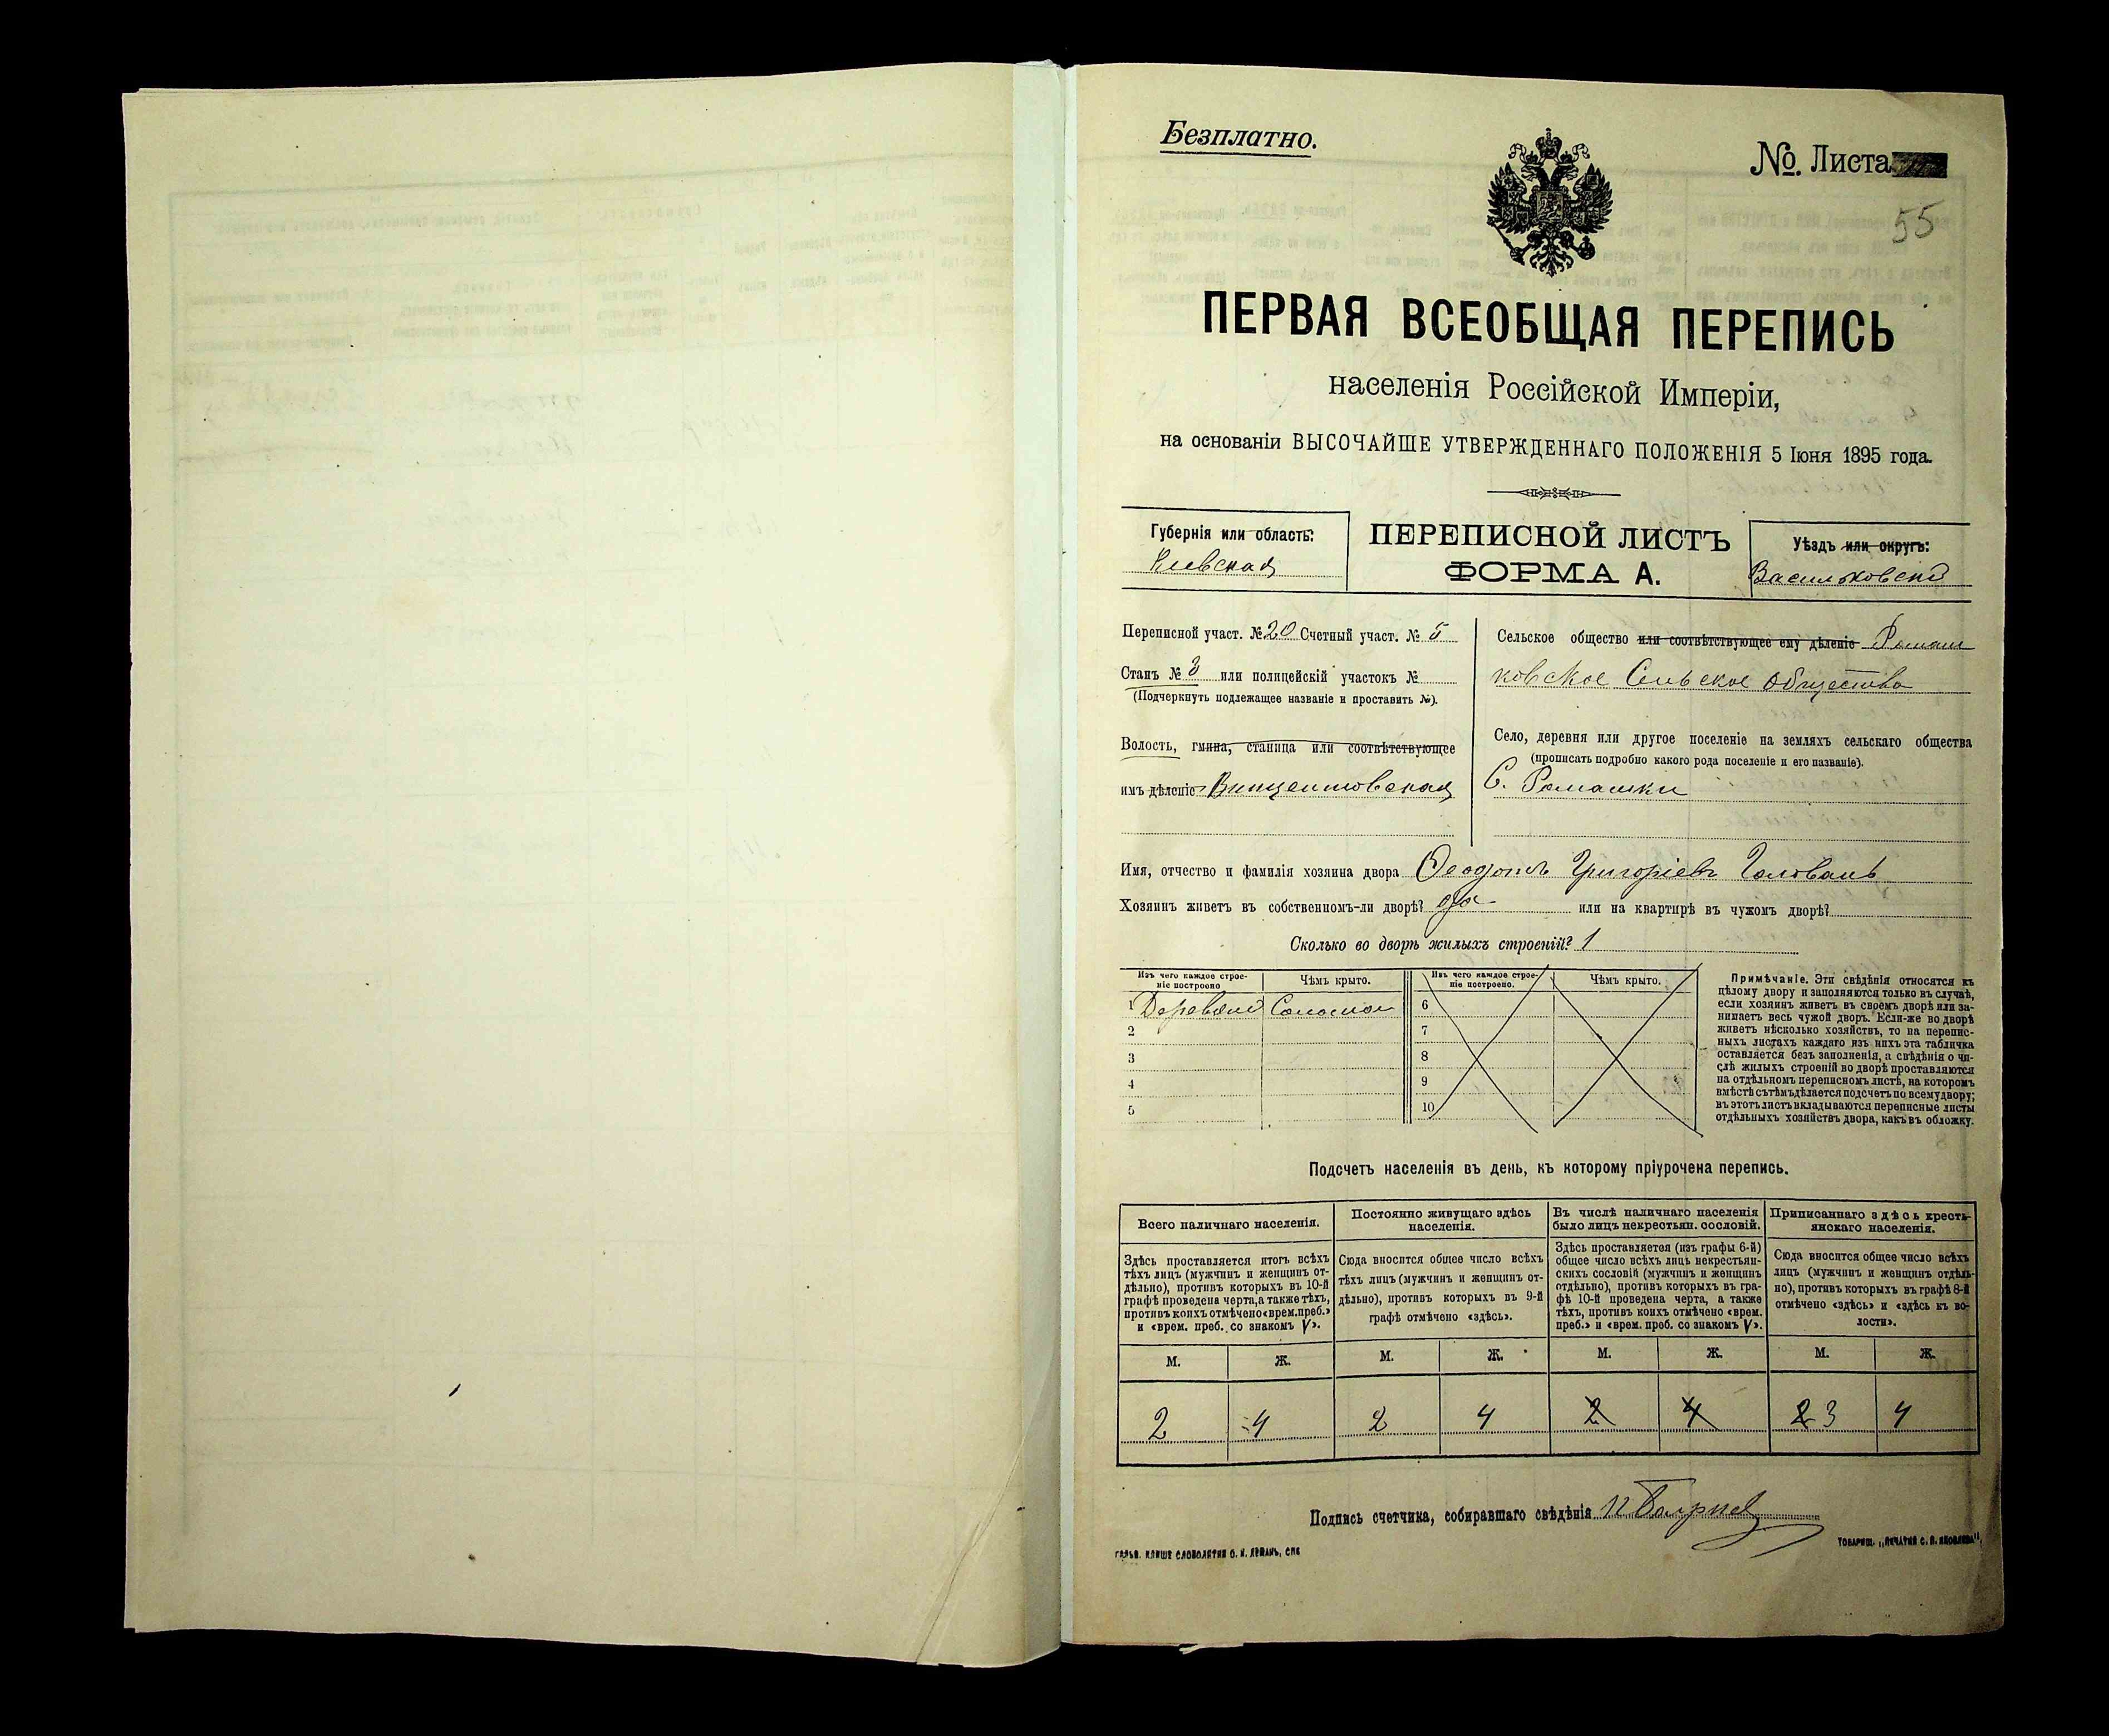 Безплатно.
№. Листа
55
ПЕРВАЯ ВСЕОБЩАЯ ПЕРЕПИСЬ
населенія Россійской Имперіи,
на основаніи ВЫСОЧАЙШЕ УТВЕРЖДЕННАГО ПОЛОЖЕНІЯ 5 Іюня 1895 года.
Губернія или область:
Кіевская
ПЕРЕПИСНОЙ ЛИСТЪ
ФОРМА А.
Уѣздъ или округъ:
Васильковскій
Переписной участ. № 20 Счетный участ. № 5
Станъ № 3 или полицейскій участокъ №
(Подчеркнуть подлежащее названіе и проставить №).
Волость, гмина, станица или соотвѣтствующее
имъ дѣленіе Винцентовская
Сельское общество или соотвѣтствующее ему дѣленіе Ромаш
ковское Сельское Общество
Село, деревня или другое поселеніе на земляхъ сельскаго общества
(прописать подробно какого рода поселеніе и его названіе).
С. Ромашки
Имя, отчество и фамилія хозяина двора Ѳеодотъ Григоріевъ Головань
Хозяинъ живетъ въ собственномъ-ли дворѣ? да или на квартирѣ въ чужомъ дворѣ?
Сколько во дворѣ жилыхъ строеній? 1
Изъ чего каждое строе-
ніе построено
Чѣмъ крыто.
1 Соломой
2
3
4
5
Изъ чего каждое строе-
ніе построено.
Чѣмъ крыто.
6
7
8
9
10
Примѣчаніе. Эти свѣдѣнія относятся къ
цѣлому двору и заполняются только въ случаѣ,
если хозяинъ живетъ въ своемъ дворѣ или за-
нимаетъ весь чужой дворъ. Если-же во дворѣ
живетъ нѣсколько хозяйствъ, то на перепис-
ныхъ листахъ каждаго изъ нихъ эта табличка
оставляется безъ заполненія, а свѣдѣнія о чи-
слѣ жилыхъ строеній во дворѣ проставляются
на отдѣльномъ переписномъ листѣ, на которомъ
вмѣстѣ съ тѣмъ дѣлается подсчетъ по всему двору;
въ этотъ листъ вкладываются переписные листы
отдѣльныхъ хозяйствъ двора, какъ въ обложку.
Подсчетъ населенія въ день, къ которому пріурочена перепись.
Всего наличнаго населенія.
Здѣсь проставляется итогъ всѣхъ
тѣхъ лицъ (мужчинъ и женщинъ от-
дѣльно), противъ которыхъ въ 10-й
графѣ проведена черта, а также тѣхъ,
противъ коихъ отмѣчено «врем. преб.»
и «врем. преб. со знакомъ V».
Постоянно живущаго здѣсь
населенія.
Сюда вносится общее число всѣхъ
тѣхъ лицъ (мужчинъ и женщинъ от-
дѣльно), противъ которыхъ въ 9-й
графѣ отмѣчено «здѣсь».
Въ числѣ наличнаго населенія
было лицъ некрестьян. сословій.
Здѣсь проставляется (изъ графы 6-й)
общее число всѣхъ лицъ некрестьян-
скихъ сословій (мужчинъ и женщинъ
отдѣльно), противъ которыхъ въ гра-
фѣ 10-й проведена черта, а также
тѣхъ, противъ коихъ отмѣчено «врем.
преб.» и «врем. преб. со знакомъ V».
Приписаннаго здѣсь кресть-
янскаго населенія.
Сюда вносится общее число всѣхъ
лицъ (мужчинъ и женщинъ отдѣль-
но), противъ которыхъ въ графѣ 8-й
отмѣчено «здѣсь» и «здѣсь къ во-
лости».
М. Ж. М. Ж. М. Ж. М. Ж.
2 4 2 4 2 4 2 3 4
Подпись счетчика, собиравшаго свѣдѣнія